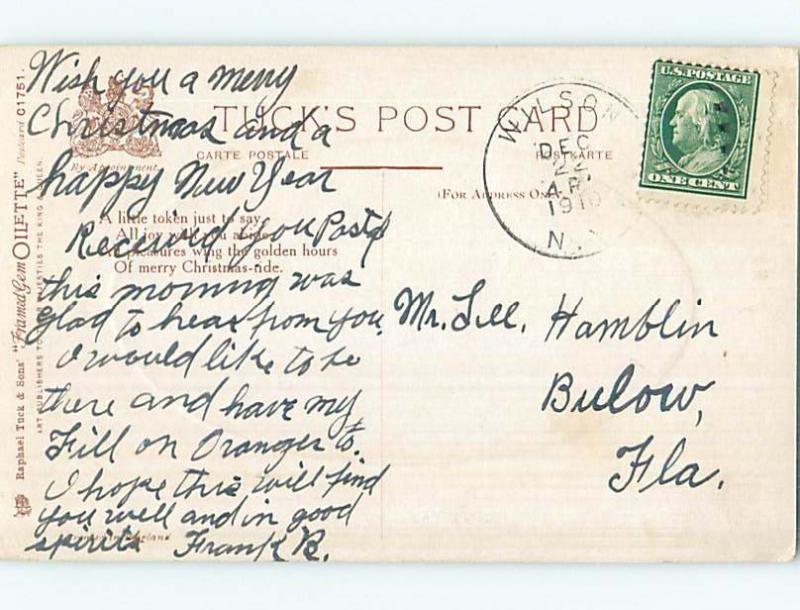 Wish you a merry
Christmas and a
happy New Year
Received you Postd
this morning was
glad to hear from you,
I would like to be
there and have my
Fill on Oranges to.
I hope this will find
you well and in good
spirits Frank B.
TUCK'S POST CARD
CARTE POSTALE
POSTKARTE
By Appointment
(FOR ADDRESS ONLY)
A little token just to say,
All joy with you abide,
pleasures wing the golden hours
Of merry Christmas-tide.
Raphael Tuck & Sons' "Framed Gem OILETTE" Postcard C1751.
ART PUBLISHERS TO THEIR MAJESTIES THE KING & QUEEN.
WILSON
DEC
22
1910
N.Y.
U.S. POSTAGE
ONE CENT
Mr. Hamblin
Bulow,
Fla.